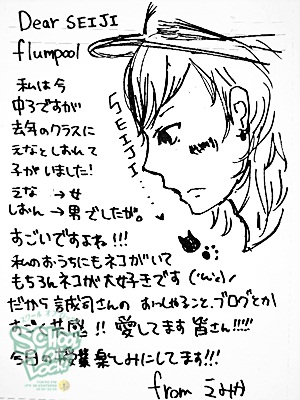 Dear SEIJI
flumpool
SEIJI
私は今
中3ですが
去年のクラスに
えなとしおんて
子がいました!
えな → 女
しおん → 男でしたが。
すごいですよね!!!
私のおうちにもネコがいて
もちろんネコが大好きです
だから誠司さんのおっしゃること、ブログとか
すごく共感!! 愛してます 皆さん!!!!!
今日の授業楽しみにしてます!!!
from えみか
SCHOOL
OF LOCK!